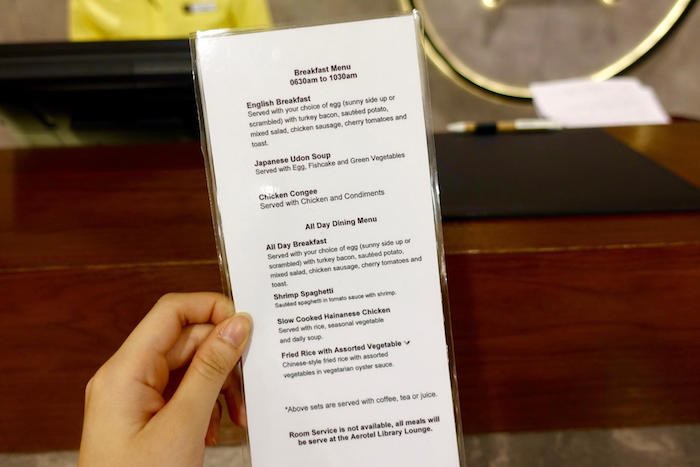 Breakfast Menu
0630am to 1030am
English Breakfast
Served with your choice of egg (sunny side up or
scrambled) with turkey bacon, sautéed potato,
mixed salad, chicken sausage, cherry tomatoes and
toast.
Japanese Udon Soup
Served with Egg, Fishcake and Green Vegetables
Chicken Congee
Served with Chicken and Condiments
All Day Dining Menu
All Day Breakfast
Served with your choice of egg (sunny side up or
scrambled) with turkey bacon, sautéed potato,
mixed salad, chicken sausage, cherry tomatoes and
toast.
Shrimp Spaghetti
Sautéed spaghetti in tomato sauce with shrimp.
Slow Cooked Hainanese Chicken
Served with rice, seasonal vegetable
and daily soup.
Fried Rice with Assorted Vegetable
Chinese-style fried rice with assorted
vegetables in vegetarian oyster sauce.
*Above sets are served with coffee, tea or juice.
Room Service is not available, all meals will
be serve at the Aerotel Library Lounge.